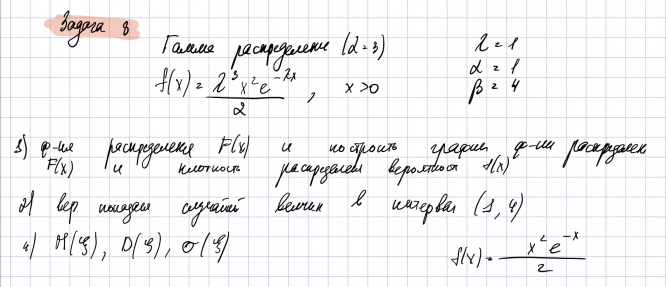 Задача 8
Гамма распределение (α=3)
f(x) = λ³x²e^(-λx) / 2 , x>0
λ = 1
α = 1
β = 4
1) ф-ия распределения F(x) и построить графики ф-ии распределен
F(x) и плотность распределен вероятност f(x)
2) вер. попадан случайной величин в интервал (1, 4)
4) M(ξ), D(ξ), σ(ξ)
f(x) = x²e^(-x) / 2